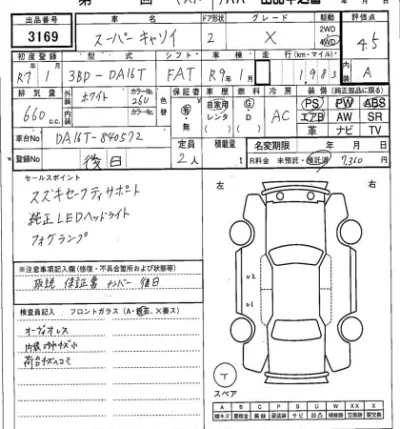 出品番号 車名 ドア形状 グレード 駆動 評価点
3169 スーパーキャリイ 2 X 2WD 4WD 4.5
初度登録 型式 シフト 車検 走行 (km・マイル) 内装
R7年1月 3BD-DA16T FAT R9年1月 1,983 A
排気量 外装 ホワイト カラーNo. 26U 色替 保証書 車歴 燃料 冷房 装備(純正部品に限る)
660 c.c. 内装 カラーNo. 有・無 自家用 レンタ G D AC PS PW ABS
エアB AW SR
革 ナビ TV
車台No DA16T-840572 定員 積載量 名変期限 年 月 日
登録No 後日 2人 t R料金 未預託・預託済 7,310円
セールスポイント
スズキセーフティサポート
純正LEDヘッドライト
フォグランプ
※注意事項記入欄(修復・不具合箇所および状態等)
取説 保証書 ナンバー 後日
検査員記入 フロントガラス(A・飛石、X要ス)
オーディオレス
内張コウチキズ小
荷台キズヘコミ
左 右
スペア
A B C P S U W X XX